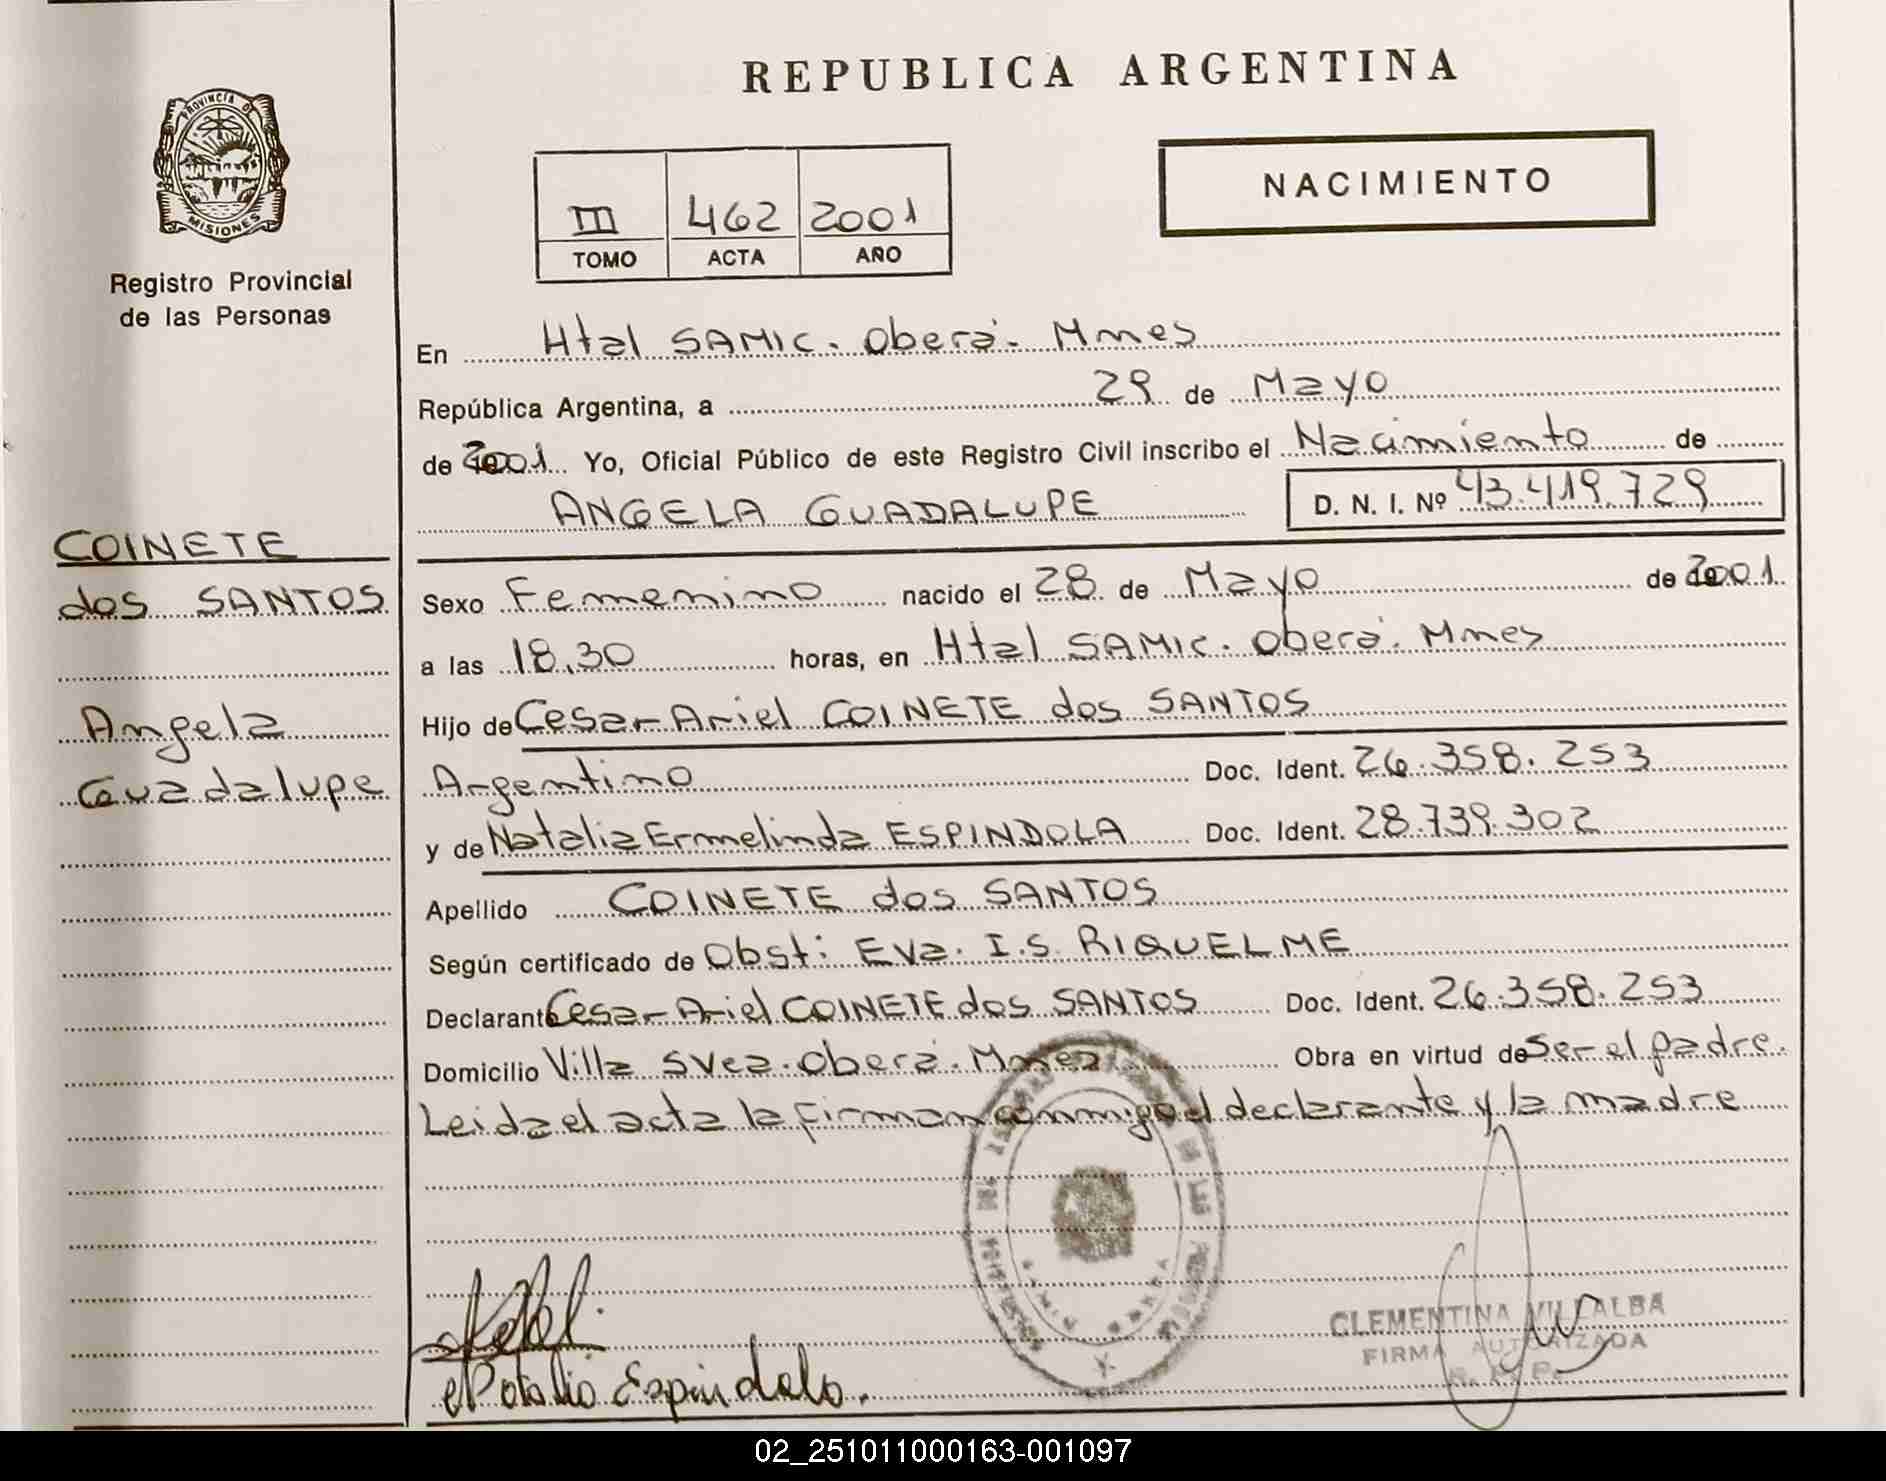 REPUBLICA ARGENTINA
PROVINCIA DE
MISIONES
Registro Provincial
de las Personas
III 462 2001
TOMO ACTA AÑO
NACIMIENTO
En Htal SAMIC. Oberá. Mnes
República Argentina, a 29 de Mayo
de 2001 Yo, Oficial Público de este Registro Civil inscribo el Nacimiento de
ANGELA GUADALUPE D. N. I. Nº 43.419.729
COINETE
dos SANTOS
Angela
Guadalupe
Sexo Femenino nacido el 28 de Mayo de 2001
a las 18.30 horas, en Htal SAMIC. Oberá. Mnes
Hijo de Cesar Ariel COINETE dos SANTOS
Argentino Doc. Ident. 26.358.253
y de Natalia Ermelinda ESPINDOLA Doc. Ident. 28.739.302
Apellido COINETE dos SANTOS
Según certificado de Obst: Eva. I.S. RIQUELME
Declarante Cesar Ariel COINETE dos SANTOS Doc. Ident. 26.358.253
Domicilio Villa Svea. Oberá. Mnes Obra en virtud de Ser el padre.
Leida el acta la firman conmigo el declarante y la madre
Natalia Espindola.
CLEMENTINA VILLALBA
FIRMA AUTORIZADA
R. P. P.
02_251011000163-001097